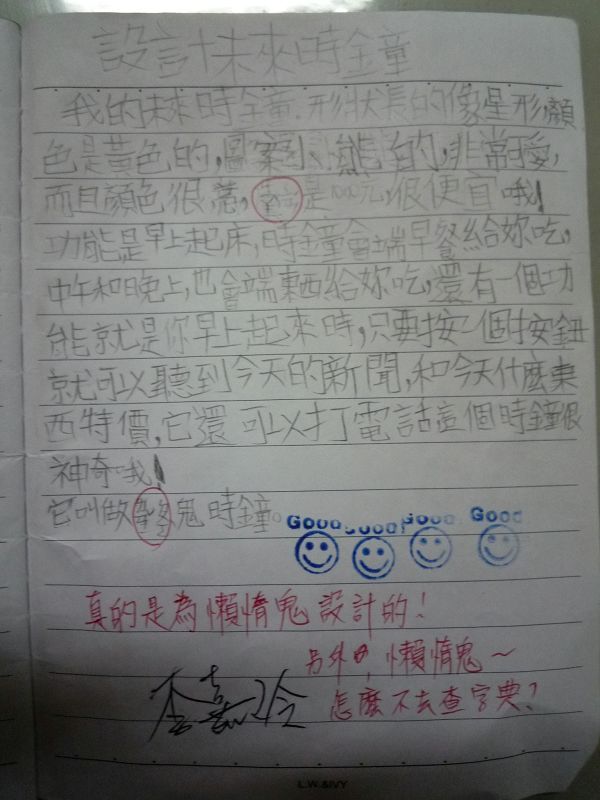 設計未來時鐘
我的未來時鐘,形狀長的像星形,顏
色是黃色的,圖案小熊的,非常可愛,
而且顏色很 是1000元,很便宜哦!
功能是早上起床,時鐘會端早餐給妳吃,
中午和晚上,也會端東西給妳吃,還有一個功
能就是你早上起來時,只要按一個按鈕
就可以聽到今天的新聞,和今天什麼東
西特價,它還可以打電話這個時鐘很
神奇哦!
它叫做 鬼時鐘。
Good Good Good Good
真的是為懶惰鬼設計的!
另外,懶惰鬼~
怎麼不去查字典?
L.W.&IVY